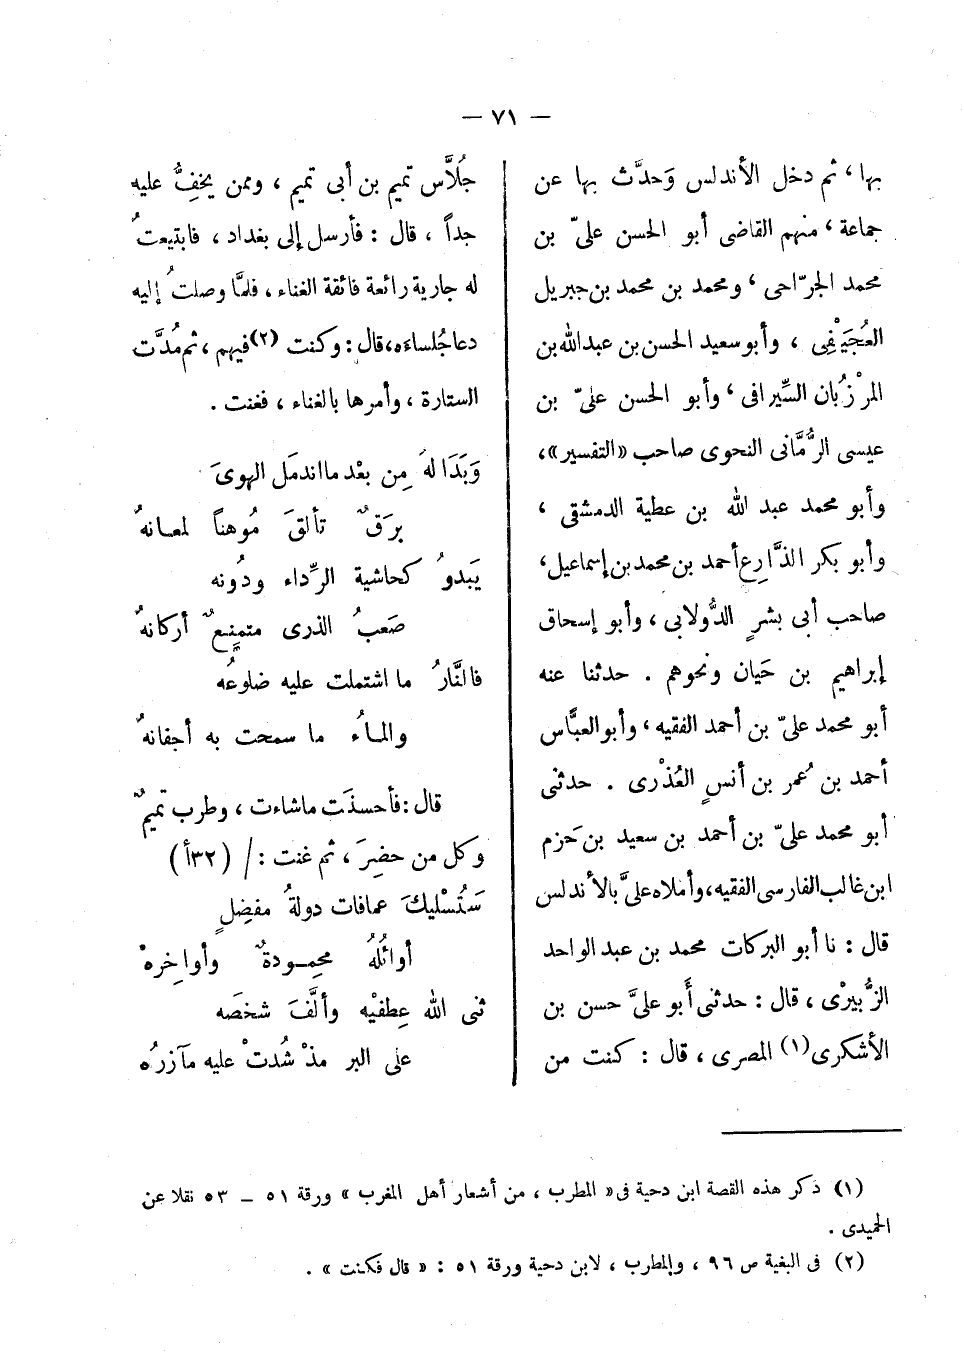 — ٧١ —
بها، ثم دخل الأندلس وَحدَّث بها عن
جماعة، منهم القاضى أبو الحسن علىّ بن
محمد الجرّاحى، ومحمد بن محمد بن جبريل
العُجَيْفِى، وأبو سعيد الحسن بن عبد الله بن
المرْزُبان السِّيرافى، وأبو الحسن علىّ بن
عيسى الرُّمَّانى النحوى صاحب «التفسير»،
وأبو محمد عبد الله بن عطية الدمشقى،
وأبو بكر الذَّارِع أحمد بن محمد بن إسماعيل،
صاحب أبى بشرٍ الدُّولابى، وأبو إسحاق
إبراهيم بن حَيان ونحوهم. حدثنا عنه
أبو محمد علىّ بن أحمد الفقيه، وأبو العبَّاس
أحمد بن عُمر بن أنسٍ العُذْرى. حدثنى
أبو محمد علىّ بن أحمد بن سعيد بن حَزم
ابن غالب الفارسى الفقيه، وأملاه علىَّ بالأندلس
قال: نا أبو البركات محمد بن عبد الواحد
الزُّبيرْى، قال: حدثنى أَبو علىَّ حسن بن
الأشكرى(١) المصرى، قال: كنت من
جُلاَّس تميم بن أبى تميم، وممن يخفِّ عليه
جداً، قال: فأرسل إلى بغداد، فابتيعتُ
له جارية رائعة فائقة الغناء، فلمَّا وصلتُ إليه
دعا جُلساءَه، قال: وكنت (٢) فيهم، ثم مُدَّت
الستارة، وأمرها بالغناء، فغنت.
وَبَدَا لهَ مِن بعْد ما اندمَل الهوىَ
برَقٌ تألقَ مُوهناً لمعانهُ
يَبدوُ كحاشية الرِّداء ودُونه
صَعبُ الذرى متمنِّعٌ أركانهُ
فالنَّارُ ما اشتملت عليه ضلوعُه
والماءُ ما سمحت به أجفانهُ
قال: فأحسنَت ما شاءت، وطرب تميمٌ
وكل من حضرَ، ثم غنت: / (٣٢أ)
سَتُسْليكَ عمافات دولةُ مفضِلٍ
أوائلُهُ محمودةٌ وأواخِرهْ
ثنى الله عِطفيْه وألَّفَ شخصَه
على البر مذْ شُدتْ عليه مآزرُه
(١) ذكر هذه القصة ابن دحية فى «المطرب، من أشعار أهل المغرب» ورقة ٥١ – ٥٣ نقلا عن
الحميدى.
(٢) فى البغية ص ٩٦، والمطرب، لابن دحية ورقة ٥١: «قال فكنت».